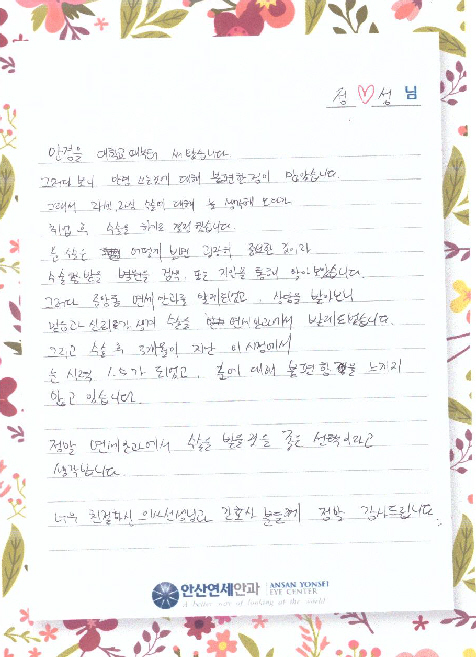 정♡성 님
안경을 대학교 때부터 써왔습니다
그러다 보니 안경 쓰는것에 대해 불편한점이 많았습니다.
그래서 라식, 라섹 수술에 대해 늘 생각해 오다가
취업 후 수술을 하기로 결정했습니다.
눈 수술은 어떻게 보면 굉장히 중요한 것이라
수술 받을 병원을 검색, 또는 지인을 통해 알아보았습니다.
그러다 중앙동 연세안과로 알게되었고, 상담을 받아보니
믿음과 신뢰감이 생겨 수술을 연세안과에서 받게되었습니다.
그리고 수술 후 3개월이 지난 이 시점에서
눈 시력 1.5가 되었고, 눈에 대해 불편함을 느끼지
않고 있습니다.
정말 연세안과에서 수술을 받은것을 좋은 선택이라고
생각합니다.
너무 친절하신 의사선생님과 간호사 분들께 정말 감사드립니다.
안산연세안과 ANSAN YONSEI
EYE CENTER
A better way of looking at the world